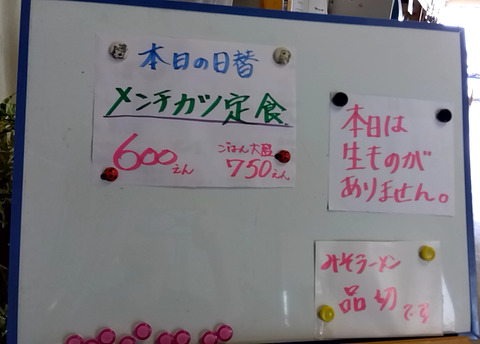 本日の日替
メンチカツ定食
600えん
ごはん大盛
750えん
本日は
生ものが
ありません。
みそラーメン
品切です